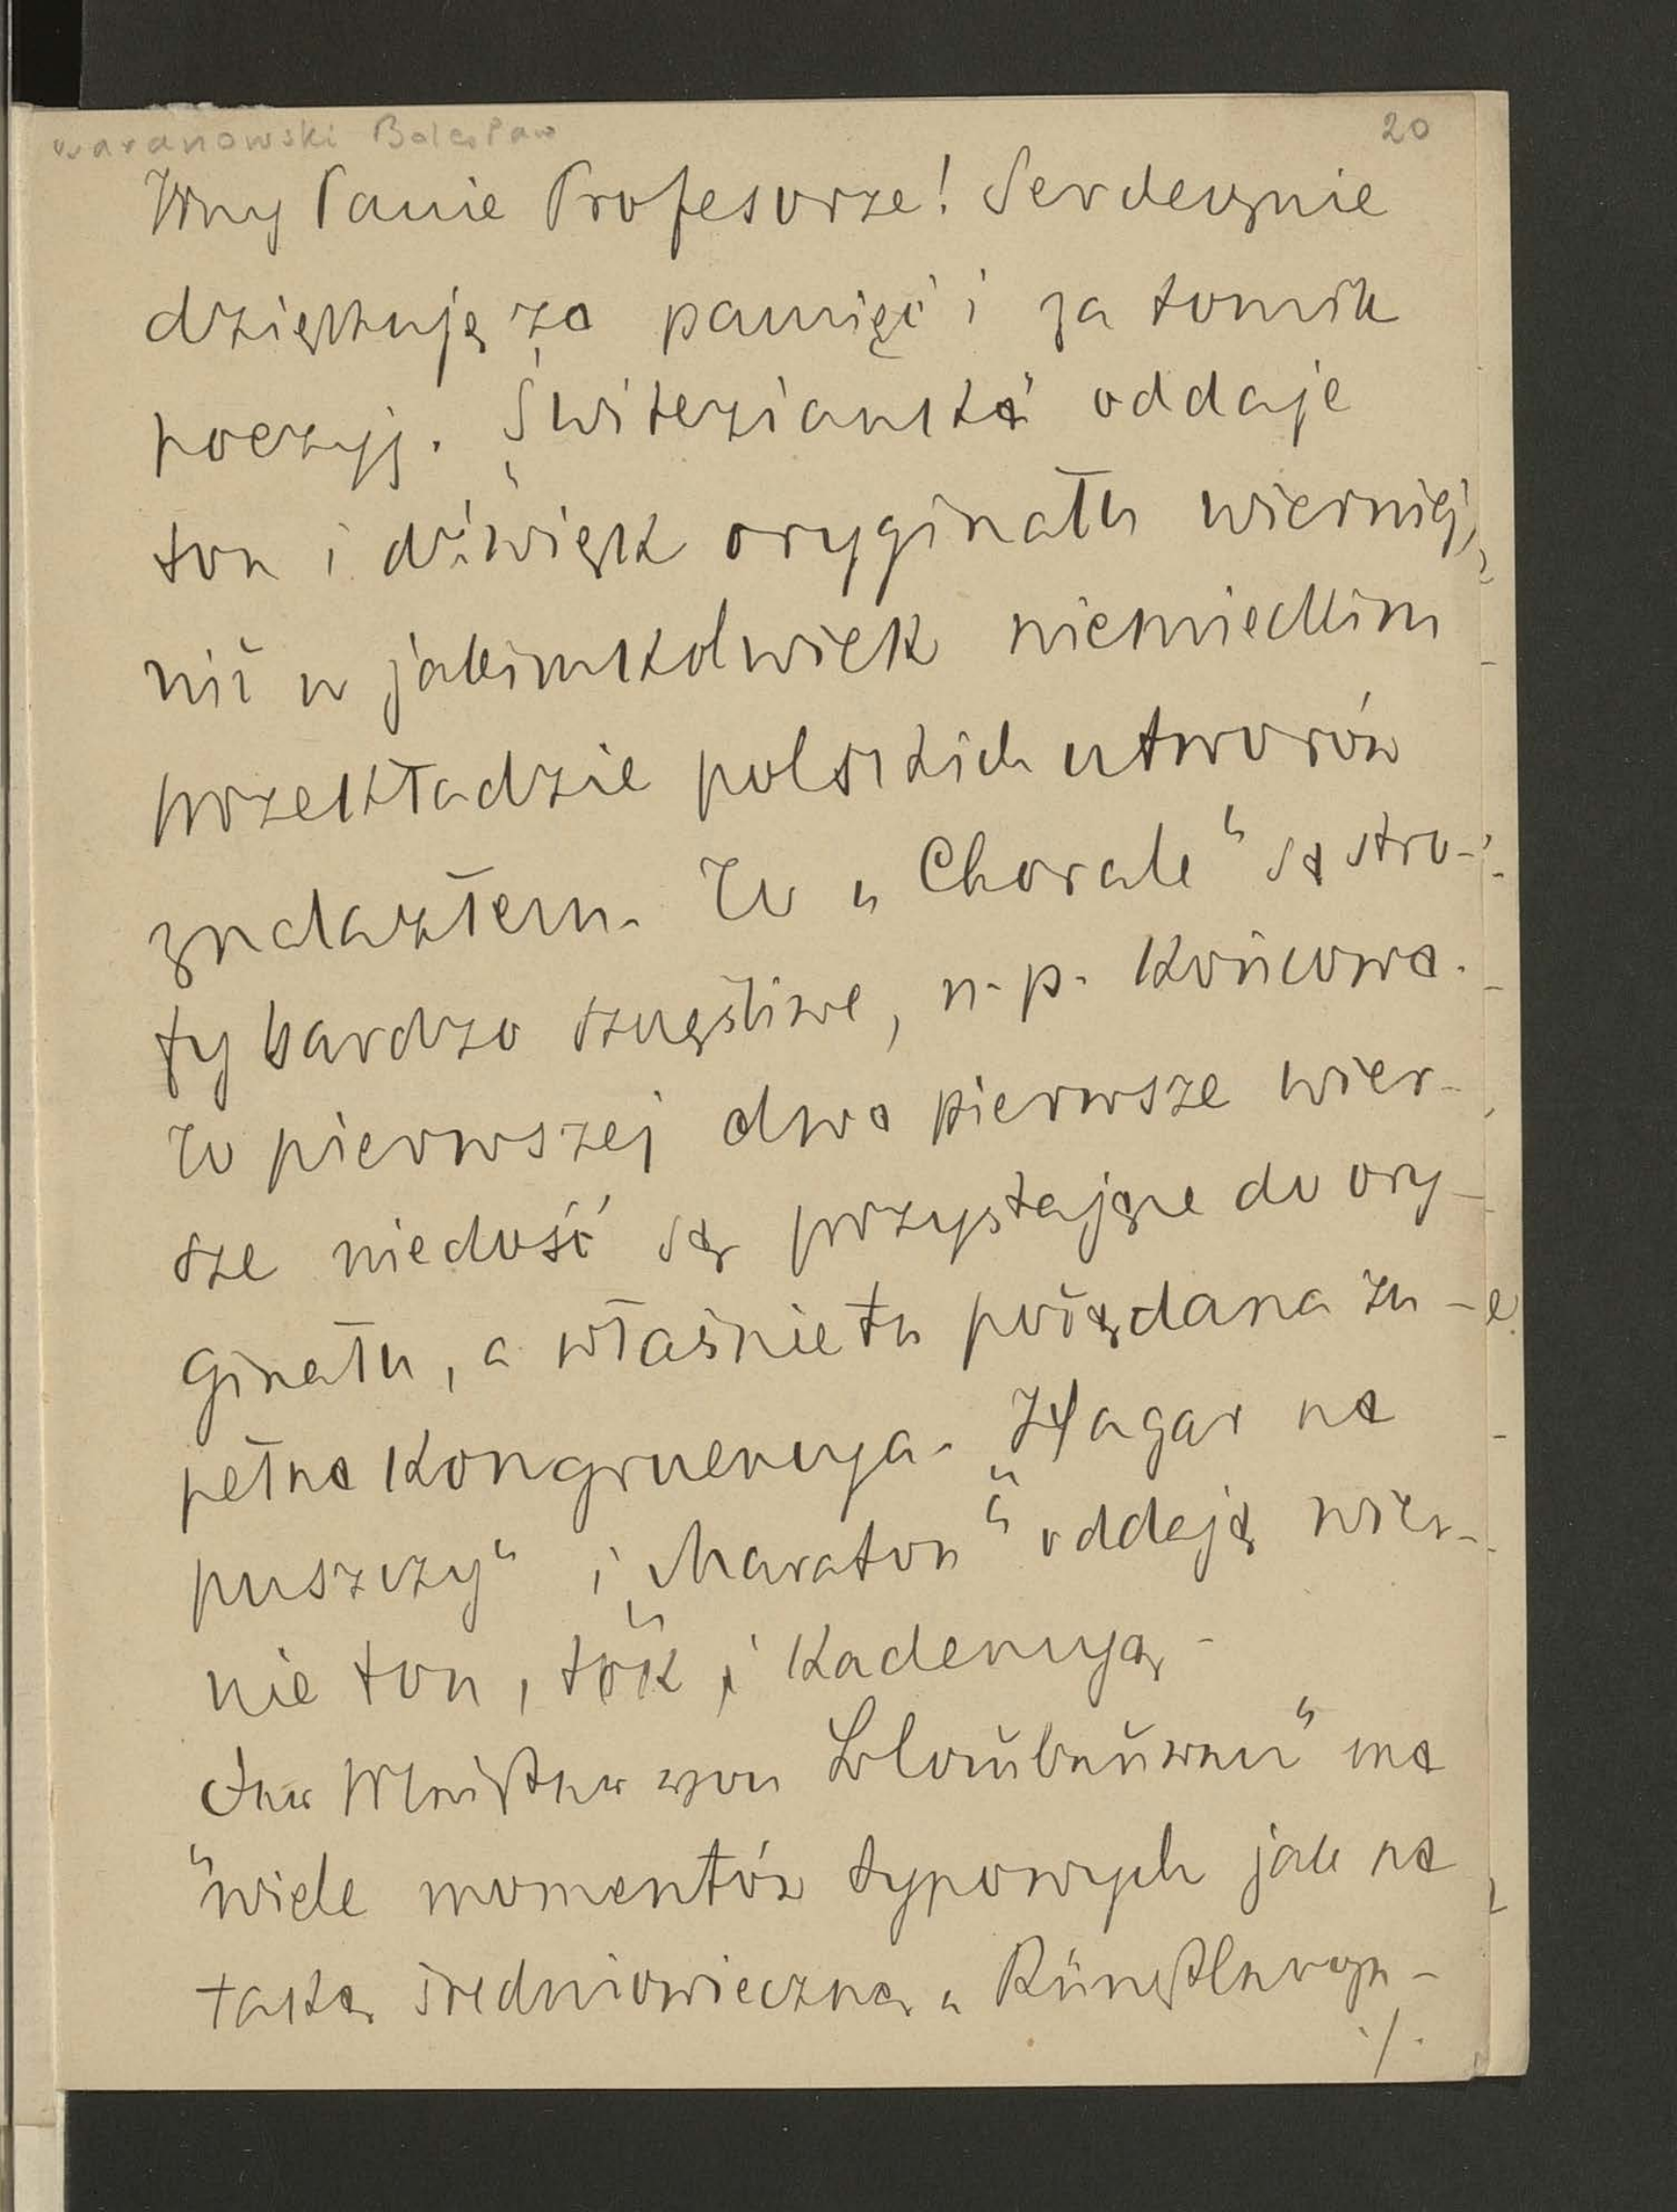 Baranowski Bolesław
20
Wny Panie Profesorze! Serdecznie
dziękuję za pamięć i za tomik
poezyj. „Świtezianka" oddaje
ton i dźwięk oryginału wierniej,
niż w jakimkolwiek niemieckim
przekładzie polskich utworów
znalazłem. W „Chorale" są stro-
fy bardzo szczęśliwe, n. p. końcowa.
W pierwszej dwa pierwsze wier-
sze niedość są przystające do ory-
ginału, a właśnie tu pożądana zu-
pełna kongruencya. „Hagar na
puszczy" i „Maraton" oddają wier-
nie ton, tok i kadencyą.
„Der Meister von" ma
wiele momentów typowych jak na
taką średniowieczną „Künstlerge-
./.